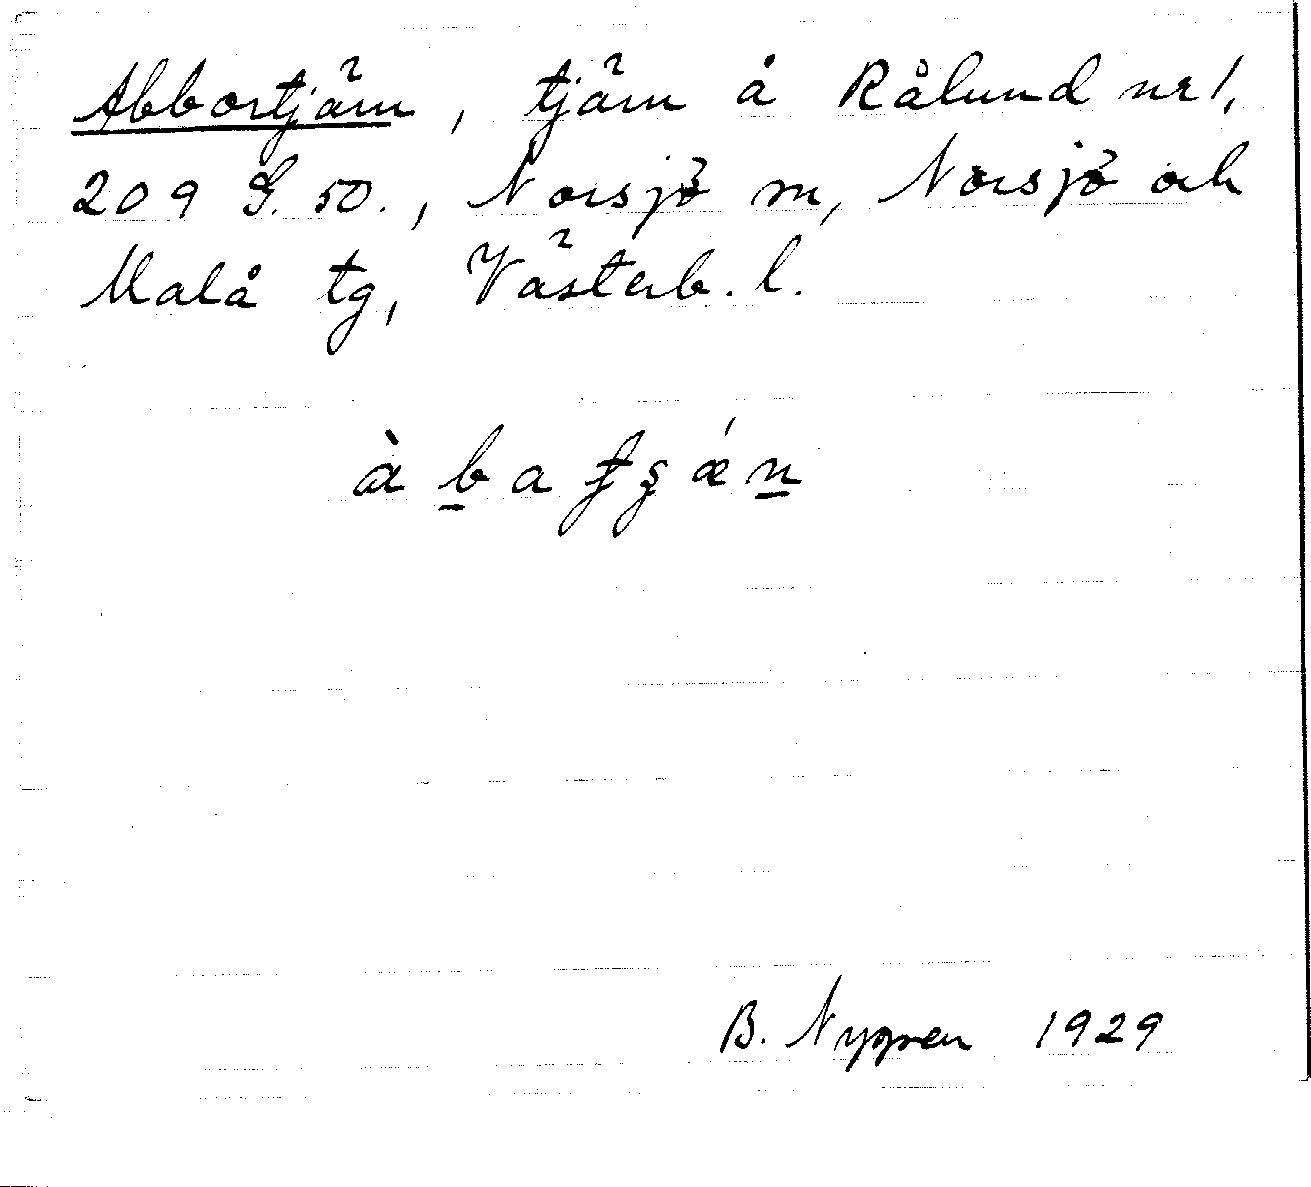 Abbortjärn, tjärn å Rålund nr 1,
209 G. 50., Norsjö sn, Norsjö och
Malå tg, Västerb. l.
B. Nygren 1929